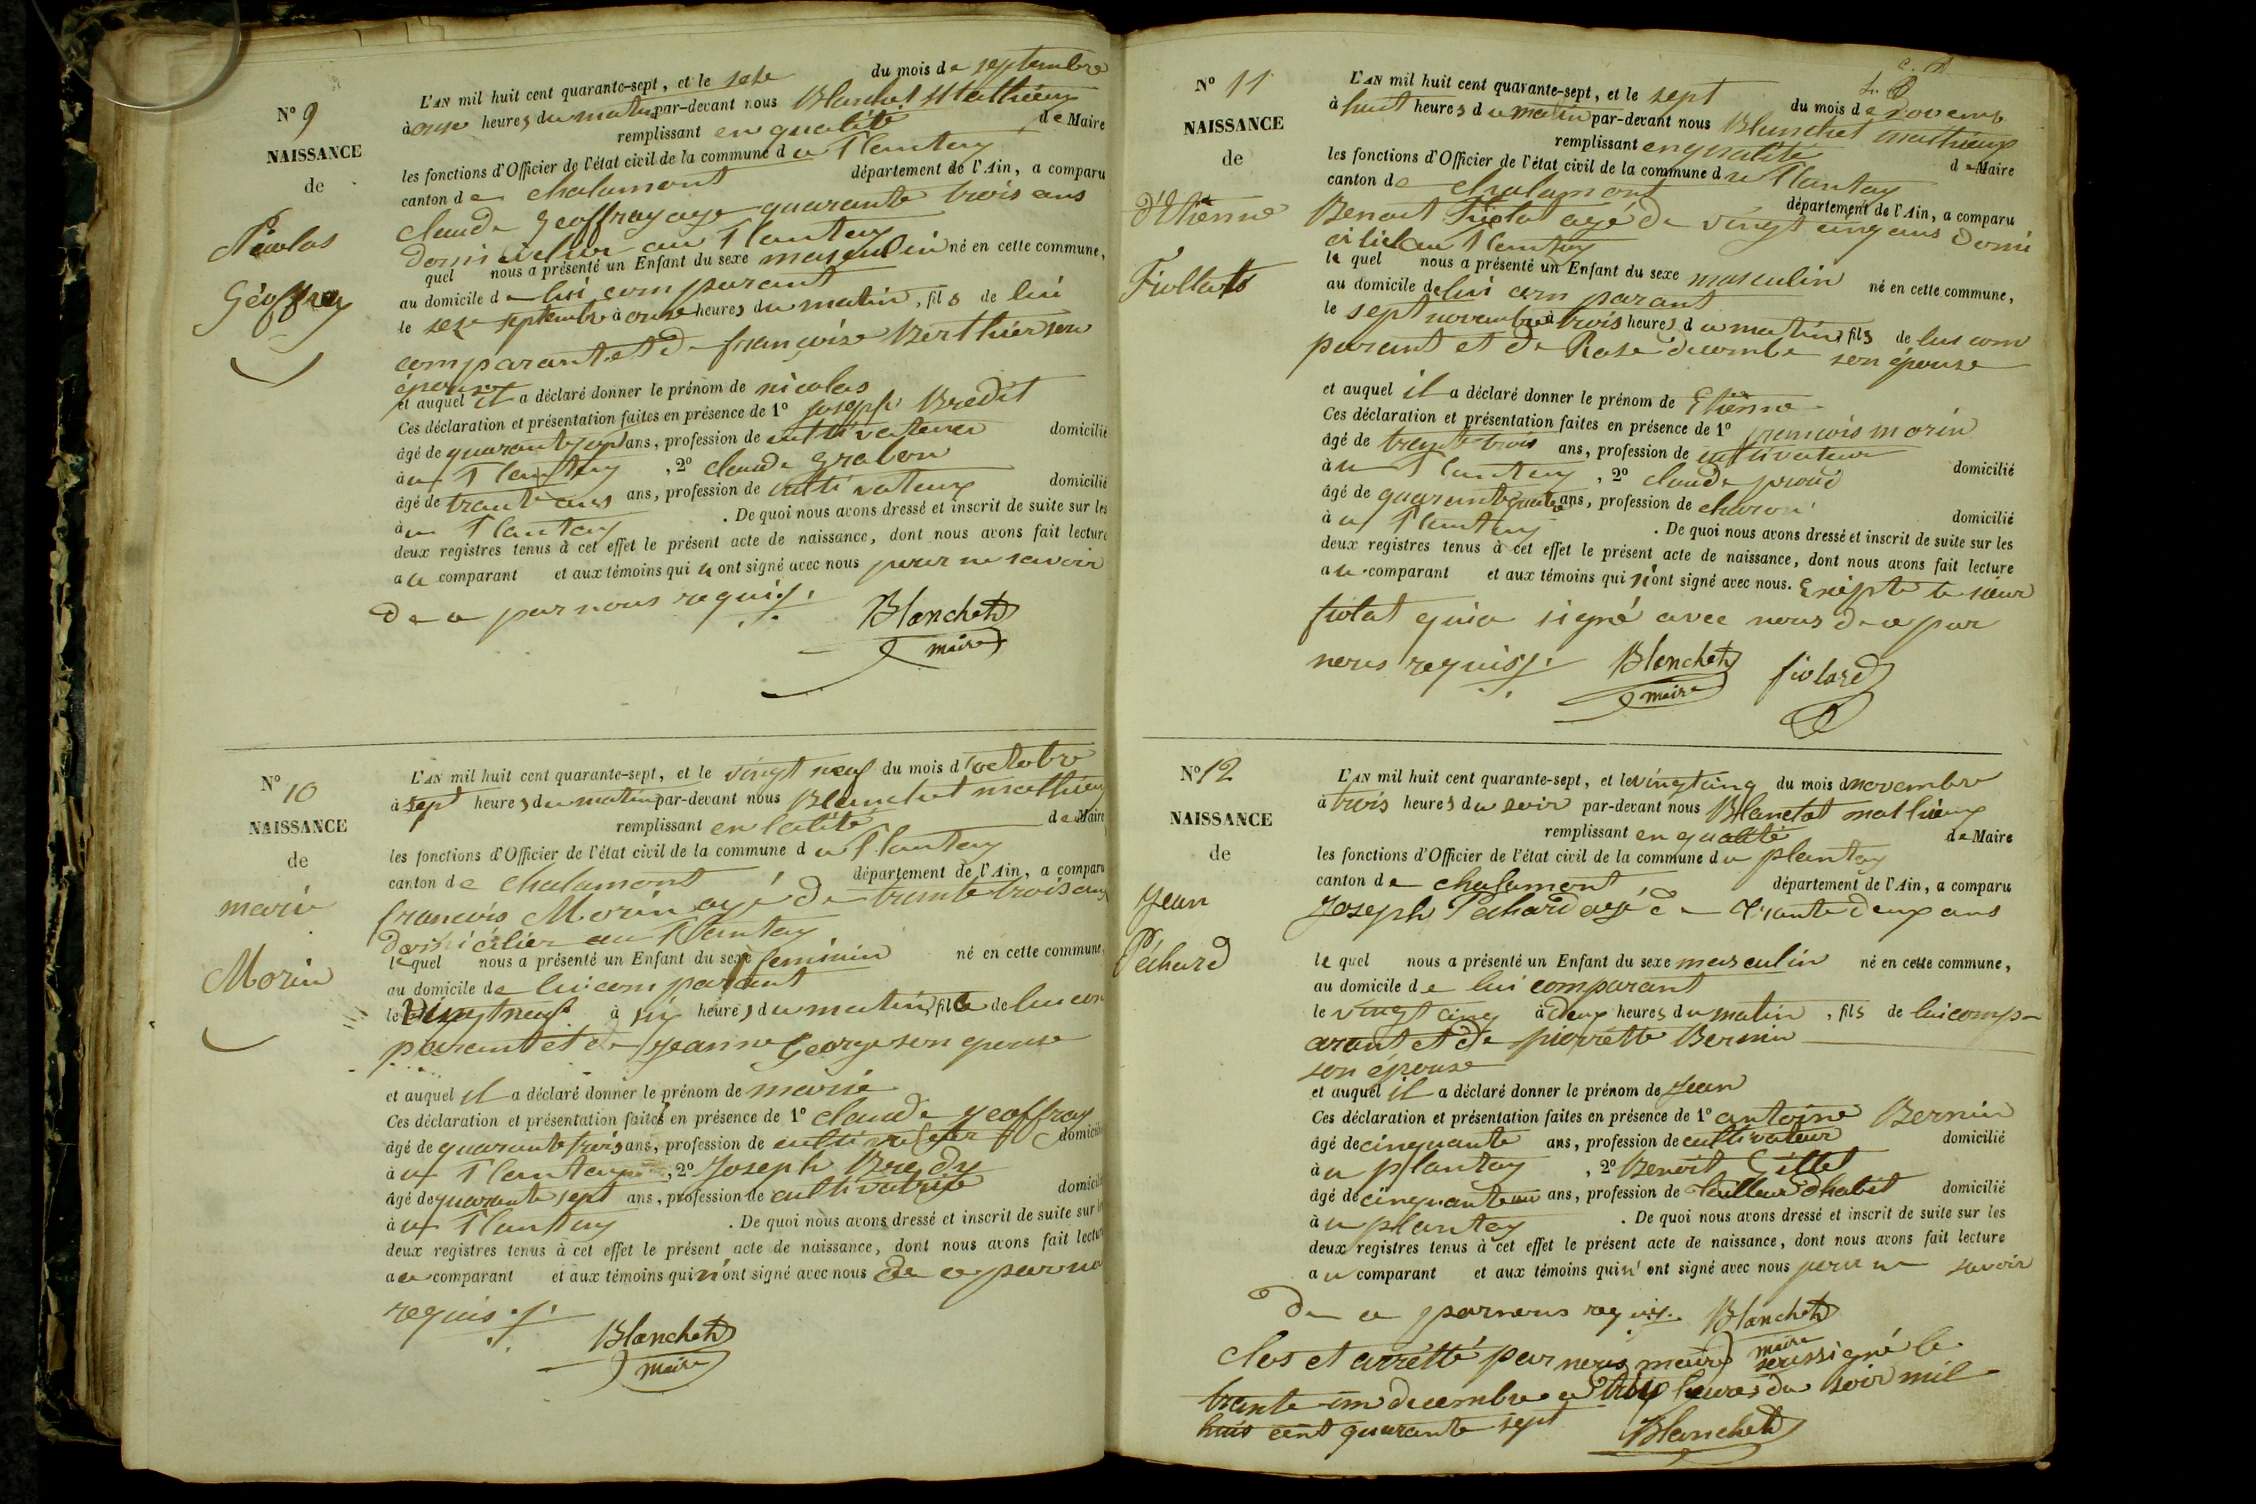 N° 9
NAISSANCE
de
Nicolas
Géoffray
L'AN mil huit cent quarante-sept, et le seze du mois de septembre
à onze heures du matin par-devant nous Blanchet Mathieux
remplissant en qualité de Maire
les fonctions d'Officier de l'état civil de la commune du Plantay
canton de chalamont département de l'Ain, a comparu
claude geoffray age quarante trois ans
domicilier au Plantay
quel nous a présenté un Enfant du sexe masculin né en cette commune,
au domicile de lui comparant
le seze septembre à onze heures du matin, fils de lui
comparant et de françoise Berthier son
épouse
et auquel il a déclaré donner le prénom de nicolas
Ces déclaration et présentation faites en présence de 1° joseph Bredit
âgé de quarante sept ans, profession de cultivateur domicilié
à u Plantay, 2° claude grabon
âgé de trante ans ans, profession de cultivateur domicilié
à u Plantay. De quoi nous avons dressé et inscrit de suite sur les
deux registres tenus à cet effet le présent acte de naissance, dont nous avons fait lecture
au comparant et aux témoins qui n ont signé avec nous pour ne savoir
de ce par nous requis.
Blanchet
maire
N° 10
NAISSANCE
de
marie
Morin
L'AN mil huit cent quarante-sept, et le vingt neuf du mois d'octobre
à sept heures du matin par-devant nous Blanchet mathieux
remplissant en calité de Maire
les fonctions d'Officier de l'état civil de la commune du Plantay
canton de chalamont département de l'Ain, a comparu
francois Morin agé de trante trois ans
domicilier au Plantay
le quel nous a présenté un Enfant du sexe feminin né en cette commune,
au domicile de lui comparant
le vingt neuf à six heures du matin, fille de lui com
parant et de jeanne George son epouse
et auquel il a déclaré donner le prénom de marie
Ces déclaration et présentation faites en présence de 1° claude geoffray
âgé de quarante trois ans, profession de cultivateur domicilié
à u Plantay, 2° Joseph Bredy
âgé de quarante sept ans, profession de cultivateur domicilié
à u Plantay. De quoi nous avons dressé et inscrit de suite sur les
deux registres tenus à cet effet le présent acte de naissance, dont nous avons fait lecture
au comparant et aux témoins qui n'ont signé avec nous de ce par no
requis.
Blanchet
maire
N° 11
NAISSANCE
de
d'Etienne
Fiollat
L'AN mil huit cent quarante-sept, et le sept du mois de Novemb
à huit heures du matin par-devant nous Blanchet mathieux
remplissant en qualité de Maire
les fonctions d'Officier de l'état civil de la commune du Plantay
canton de chalamont département de l'Ain, a comparu
Benoit Fiolat agé de vingt cinq ans domi
cilié au Plantay
le quel nous a présenté un Enfant du sexe masculin né en cette commune,
au domicile de lui comparant
le sept novembre à trois heures du matin, fils de lui com
parant et de Rose decombe son épouse
et auquel il a déclaré donner le prénom de Etienne
Ces déclaration et présentation faites en présence de 1° francois morin
âgé de trente trois ans, profession de cultivateur domicilié
à u Plantay, 2° claude proud
âgé de quarante quatre ans, profession de charon domicilié
à u Plantay. De quoi nous avons dressé et inscrit de suite sur les
deux registres tenus à cet effet le présent acte de naissance, dont nous avons fait lecture
au comparant et aux témoins qui n'ont signé avec nous. Exépté le sieur
fiolat qui a signé avec nous de ce par
nous requis.
Blanchet
maire
fiolard
N° 12
NAISSANCE
de
Jean
Péchard
L'AN mil huit cent quarante-sept, et le vingt cinq du mois d novembre
à trois heures du soir par-devant nous Blanchet mathieux
remplissant en qualité de Maire
les fonctions d'Officier de l'état civil de la commune du plantay
canton de chalamont département de l'Ain, a comparu
Joseph Pechard agé de trante deux ans
le quel nous a présenté un Enfant du sexe masculin né en cette commune,
au domicile de lui comparant
le vingt cinq à deux heures du matin, fils de lui comp
arant et de pierrette Bernin
son épouse
et auquel il a déclaré donner le prénom de Jean
Ces déclaration et présentation faites en présence de 1° antoine Bernin
âgé de cinquante ans, profession de cultivateur domicilié
à u plantay, 2° Benoit Gillet
âgé de cinquante un ans, profession de tailleur d'habit domicilié
à u plantay. De quoi nous avons dressé et inscrit de suite sur les
deux registres tenus à cet effet le présent acte de naissance, dont nous avons fait lecture
au comparant et aux témoins qui n' ont signé avec nous pour ne savoir
de ce par nous requis.
Blanchet
maire
clos et arrêtté par nous maire soussigné le
trante un decembre a trois heures du soir mil
huis cent quarante sept
Blanchet